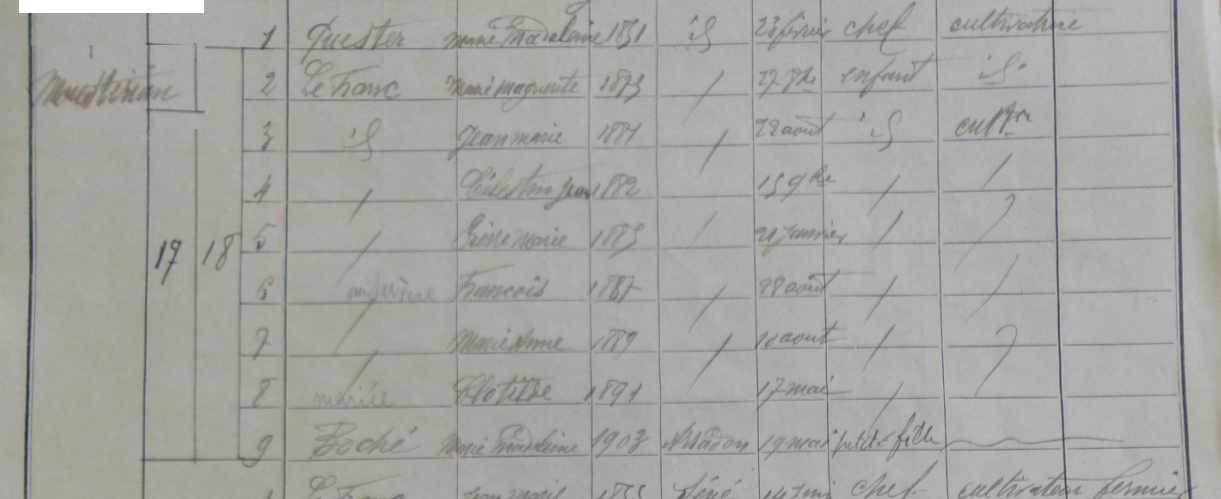 1 Quester marie Madeleine 1851 id 23 février chef cultivatrice
2 Le Franc Marie Marguerite 1873 / 27 8bre enfant id
3 id Jean marie 1881 / 22 août id cultr
4 / Célestin Jean 1882 15 9bre / /
17 18 5 / Pierre marie 1885 / 21 janvier / /
6 / François 1887 / 28 août / /
7 / Marie Anne 1889 / 10 août / /
8 mariée / Clotilde 1891 17 mai /
9 Boché Marie Madeleine 1903 Arradon 19 mai petite fille
1 Le Franc Jean Marie Séné chef cultivateur fermier